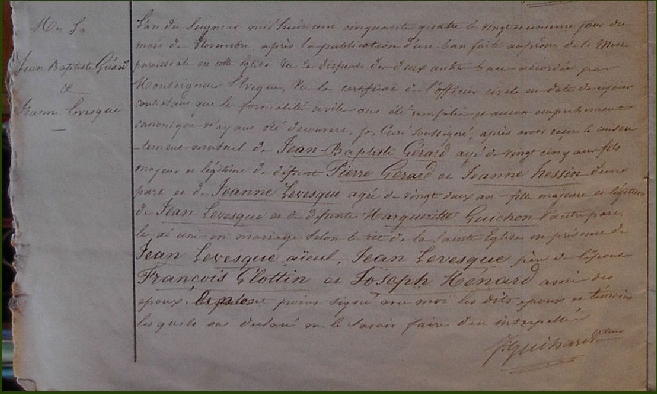 M. De
Jean Baptiste Gérard
et
Jeanne Levesque
L'an du Seigneur mil huit cent cinquante quatre le vingt neuvième jour du
mois de Novembre après la publication d'un ban faite au prône de la Messe
paroissiale en cette église Vu la dispense des deux autres bans accordée par
Monseigneur l'Evêque, Vu le certificat de l'officier civil en date de ce jour
constatant que les formalités civiles ont été remplies et aucun empêchement
canonique n'ayant été découvert, je, Curé soussigné, après avoir reçu le consen
tement mutuel de Jean-Baptiste Gérard agé de vingt cinq ans fils
majeur et légitime de défunt Pierre Gérard et Jeanne Hessin d'une
part et de Jeanne Levesque agée de vingt deux ans fille majeure et légitime
de Jean Levesque et de défunte Marguerite Guichon d'autre part,
le ai uni en mariage selon le rit de la Sainte Eglise en présence de
Jean Levesque aïeul, Jean Levesque père de l'épouse
François Glottin et Joseph Hénard amis des
époux, point signé avec moi les dits époux et témoins
lesquels ont déclaré ne le savoir faire de ce interpellés
Guihard